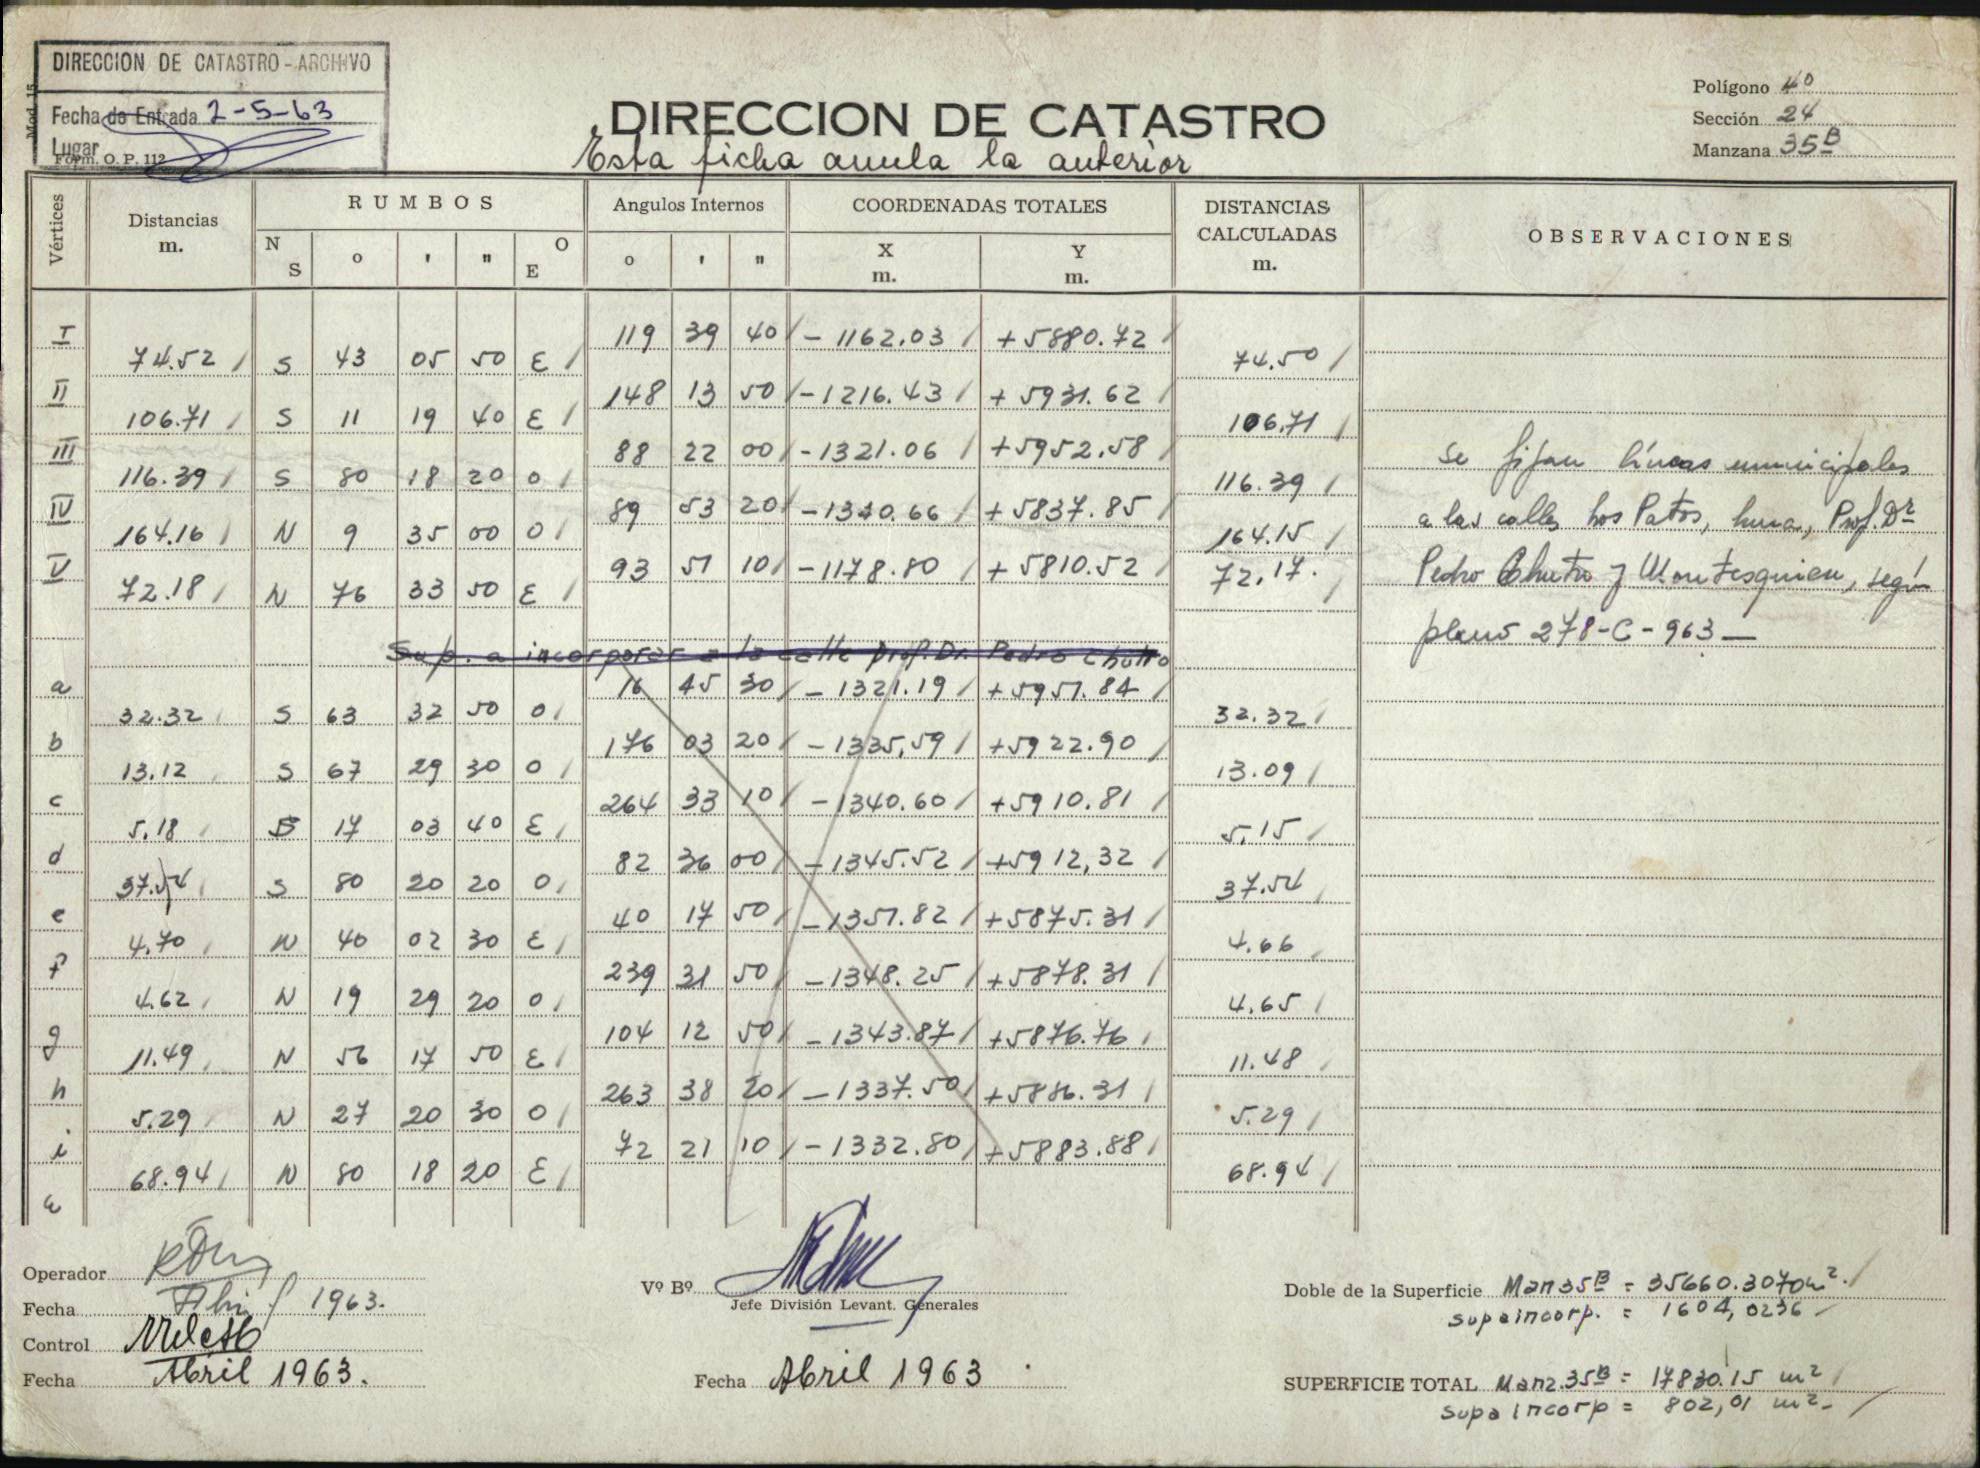 DIRECCION DE CATASTRO - ARCHIVO
Fecha de Entrada 2-5-63
Lugar
Mod. 15
Form. O. P. 112
DIRECCION DE CATASTRO
Esta ficha anula la anterior
Polígono 4º
Sección 24
Manzana 35B
Vértices Distancias m. RUMBOS Angulos Internos COORDENADAS TOTALES DISTANCIAS CALCULADAS m. OBSERVACIONES
N S o ' " O E o ' " X m. Y m.
I 119 39 40 - 1162.03 + 5880.72
74.52 S 43 05 50 E 74.50
II 148 13 50 - 1216.43 + 5931.62
106.71 S 11 19 40 E 106.71
III 88 22 00 - 1321.06 + 5952.58
116.39 S 80 18 20 O 116.39
IV 89 53 20 - 1340.66 + 5837.85
164.16 N 9 35 00 O 164.15
V 93 51 10 - 1178.80 + 5810.52
72.18 N 76 33 50 E 72.17.
Se fijan líneas municipales
a las calles Los Patos, Luna, Prof. Dr
Pedro Chutro y Montesquieu, según
plano 278-C-963
Sup. a incorporar a la calle Prof. Dr. Pedro Chutro
a 16 45 30 - 1321.19 + 5951.84
32.32 S 63 32 50 O 32.32
b 176 03 20 - 1335,59 + 5922.90
13.12 S 67 29 30 O 13.09
c 264 33 10 - 1340.60 + 5910.81
5.18 S 17 03 40 E 5,15
d 82 36 00 - 1345.52 + 5912,32
37.54 S 80 20 20 O 37.54
e 40 17 50 - 1351.82 + 5875.31
4.70 N 40 02 30 E 4.66
f 239 31 50 - 1348.25 + 5878.31
4.62 N 19 29 20 O 4.65
g 104 12 50 - 1343.87 + 5876.76
11.49 N 56 17 50 E 11.48
h 263 38 20 - 1337.50 + 5886.31
5.29 N 27 20 30 O 5.29
i 72 21 10 - 1332.80 + 5883.88
68.94 N 80 18 20 E 68.94
Operador
Fecha Abril 1963.
Control
Fecha Abril 1963.
Vº Bº
Jefe División Levant. Generales
Fecha Abril 1963
Doble de la Superficie Man 35B = 35660.3070 m².
sup a incorp. = 1604,0236
SUPERFICIE TOTAL Manz. 35B = 17830.15 m²
Sup a incorp = 802,01 m².